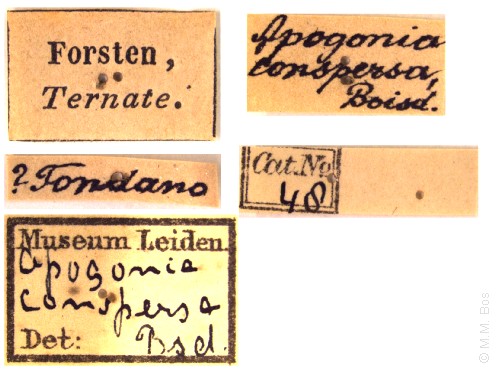 Forsten,
Ternate.
Apogonia
conspersa,
Boisd.
? Tondano
Cat. No
48
Museum Leiden
Apogonia
conspersa
Det: Bsd.
© M.M. Bos